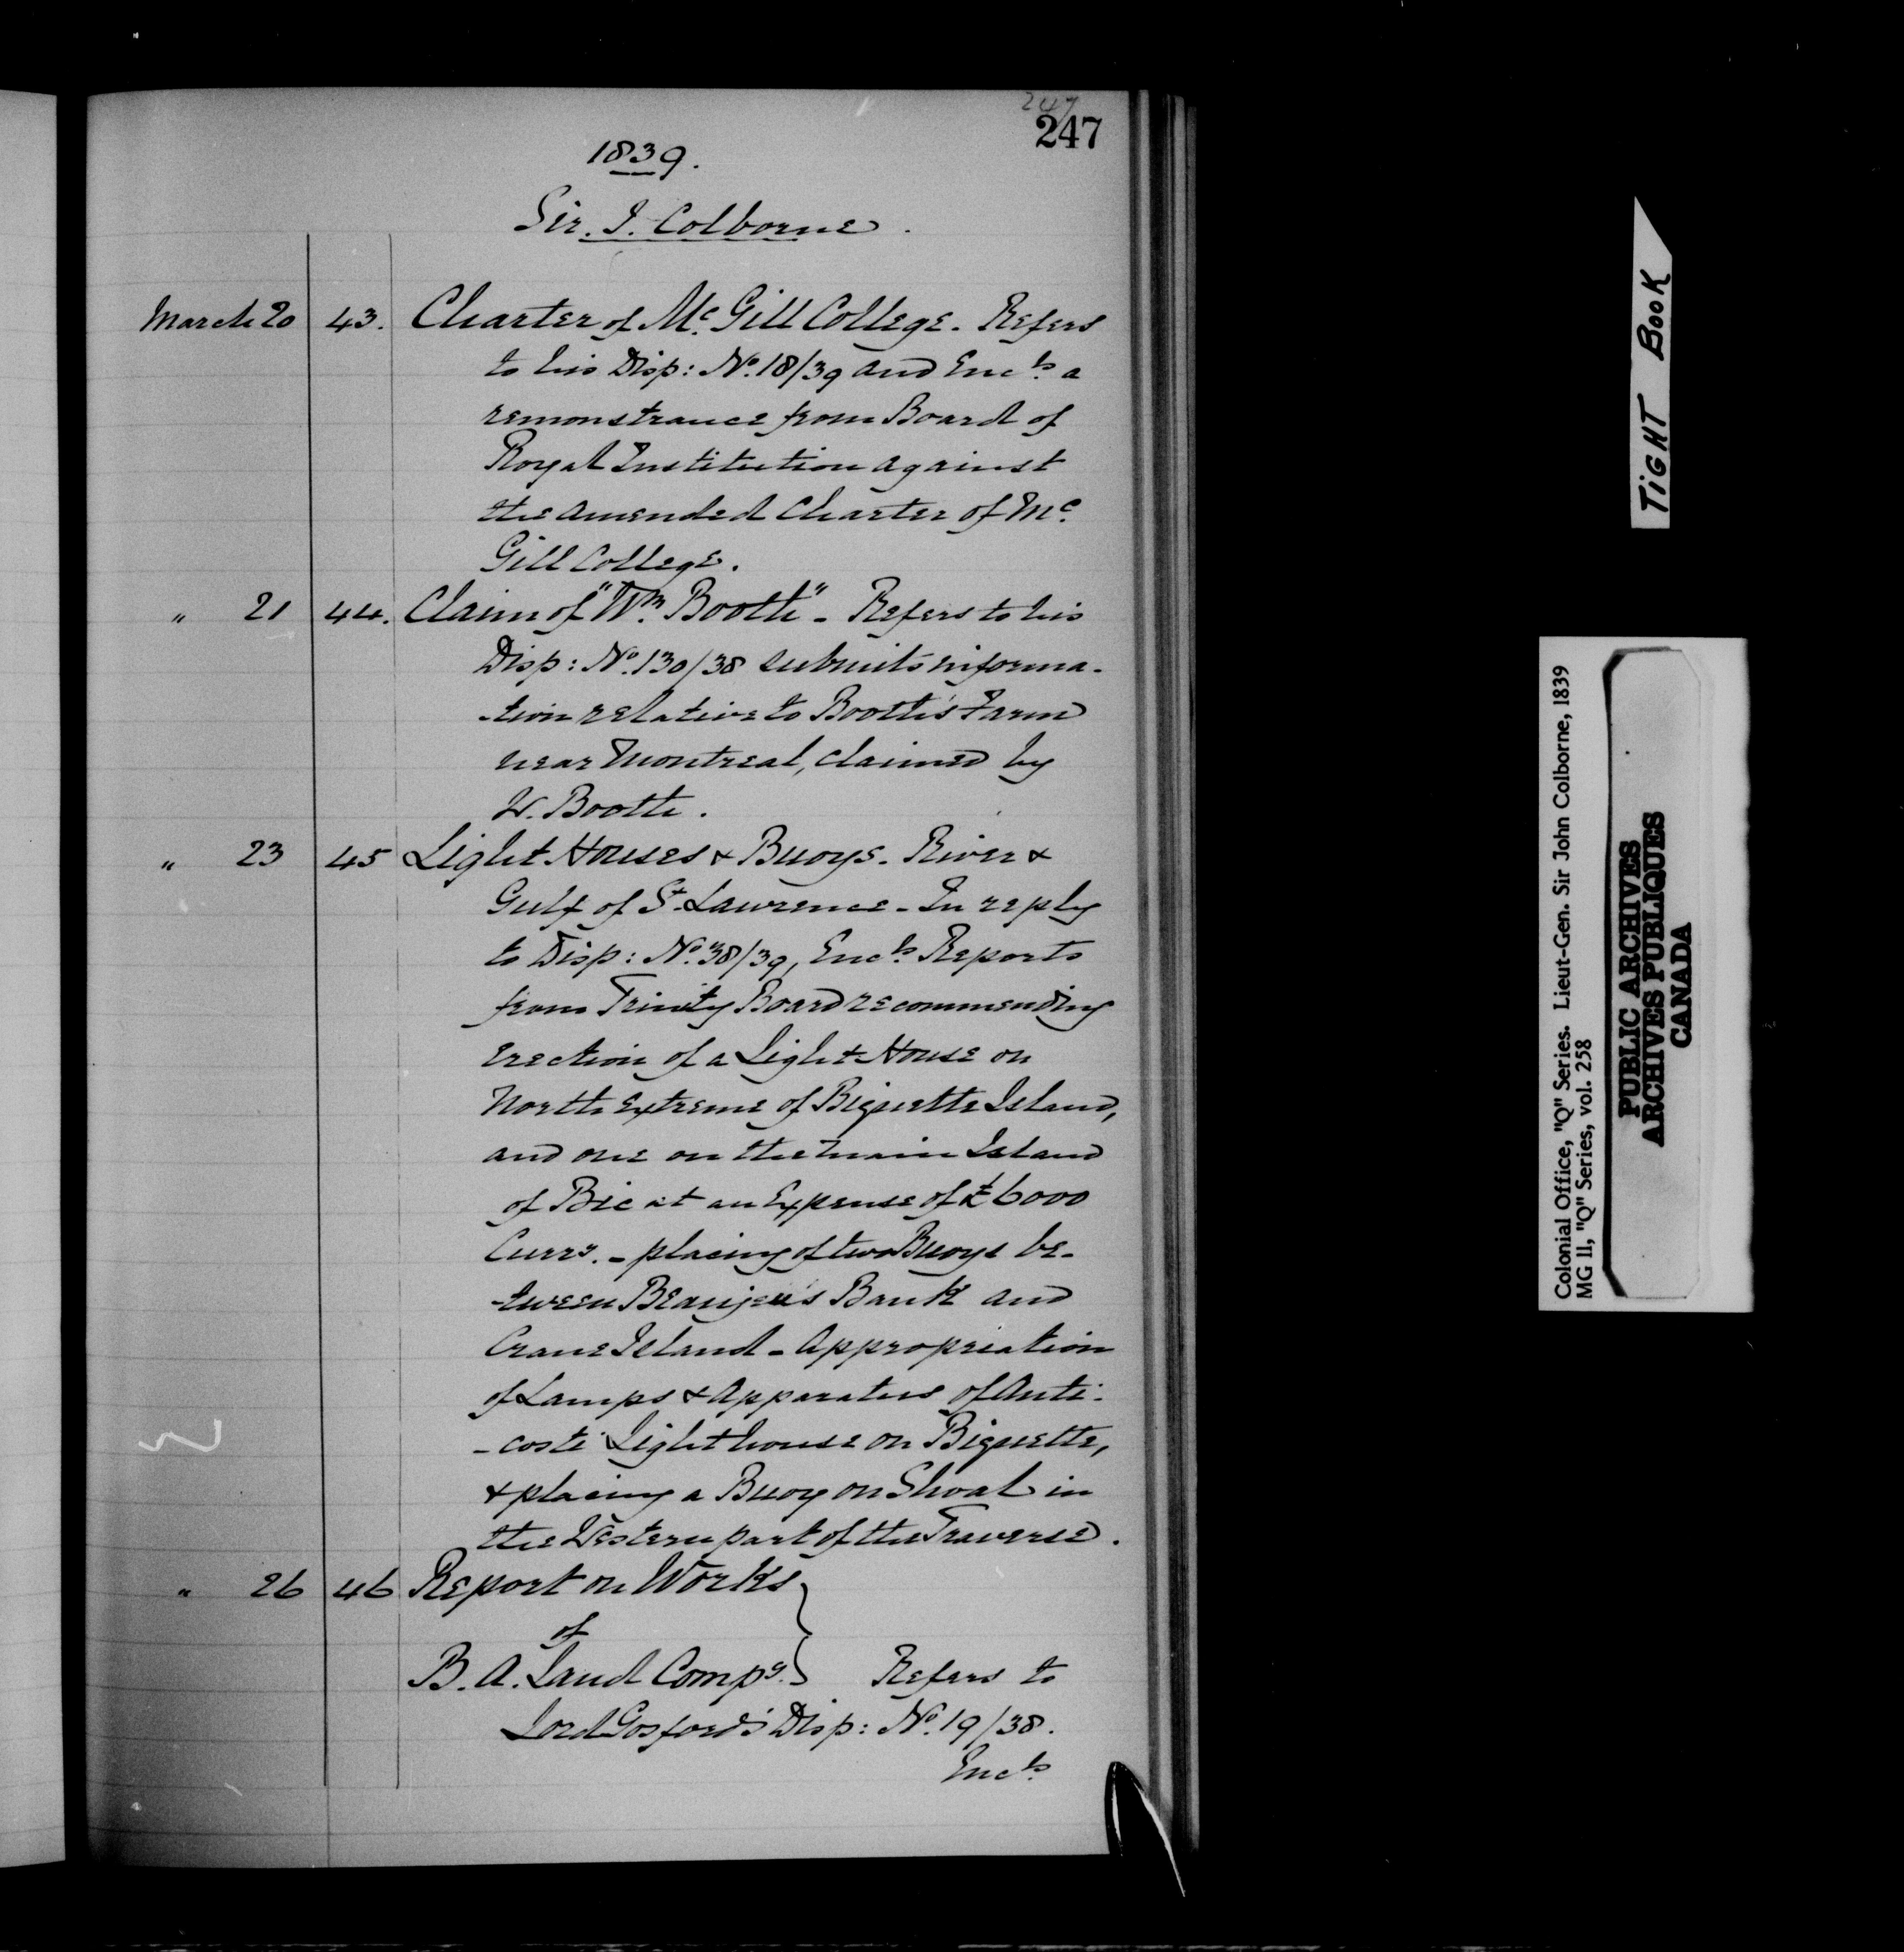 247
247
1839.
Sir. J. Colborne.
March 20 43. Charter of Mc. Gill College - Refers
to his Disp: No. 18/39 and Encls. a
remonstrance from Board of
Royal Institution against
the amended Charter of Mc.
Gill College.
" 21 44. Claim of "Wm. Booth" - Refers to his
Disp: No. 130/38 submits informa-
-tion relative to Booth's Farm
near Montreal, claimed by
W. Booth.
" 23 45 Light Houses & Buoys. River &
Gulf of St. Lawrence - In reply
to Disp: No. 38/39, Encls. Reports
from Trinity Board recommending
erection of a Light House on
North Extreme of Biquette Island,
and one on the main Island
of Bic at an Expense of £6000
Curry. - placing of two Buoys be-
-tween Beaujeu's Bank and
Crane Island - Appropriation
of Lamps & Apparatus of Anti-
-costi Lighthouse on Biquette,
& placing a Buoy on Shoal in
the Western part of the Traverse.
" 26 46 Report on Works
of
B. A. Land Compy. } Refers to
Lord Gosford's Disp: No. 19/38.
Encls.
TIGHT BOOK
Colonial Office, "Q" Series. Lieut-Gen. Sir John Colborne, 1839
MG 11, "Q" Series, vol. 258
PUBLIC ARCHIVES
ARCHIVES PUBLIQUES
CANADA